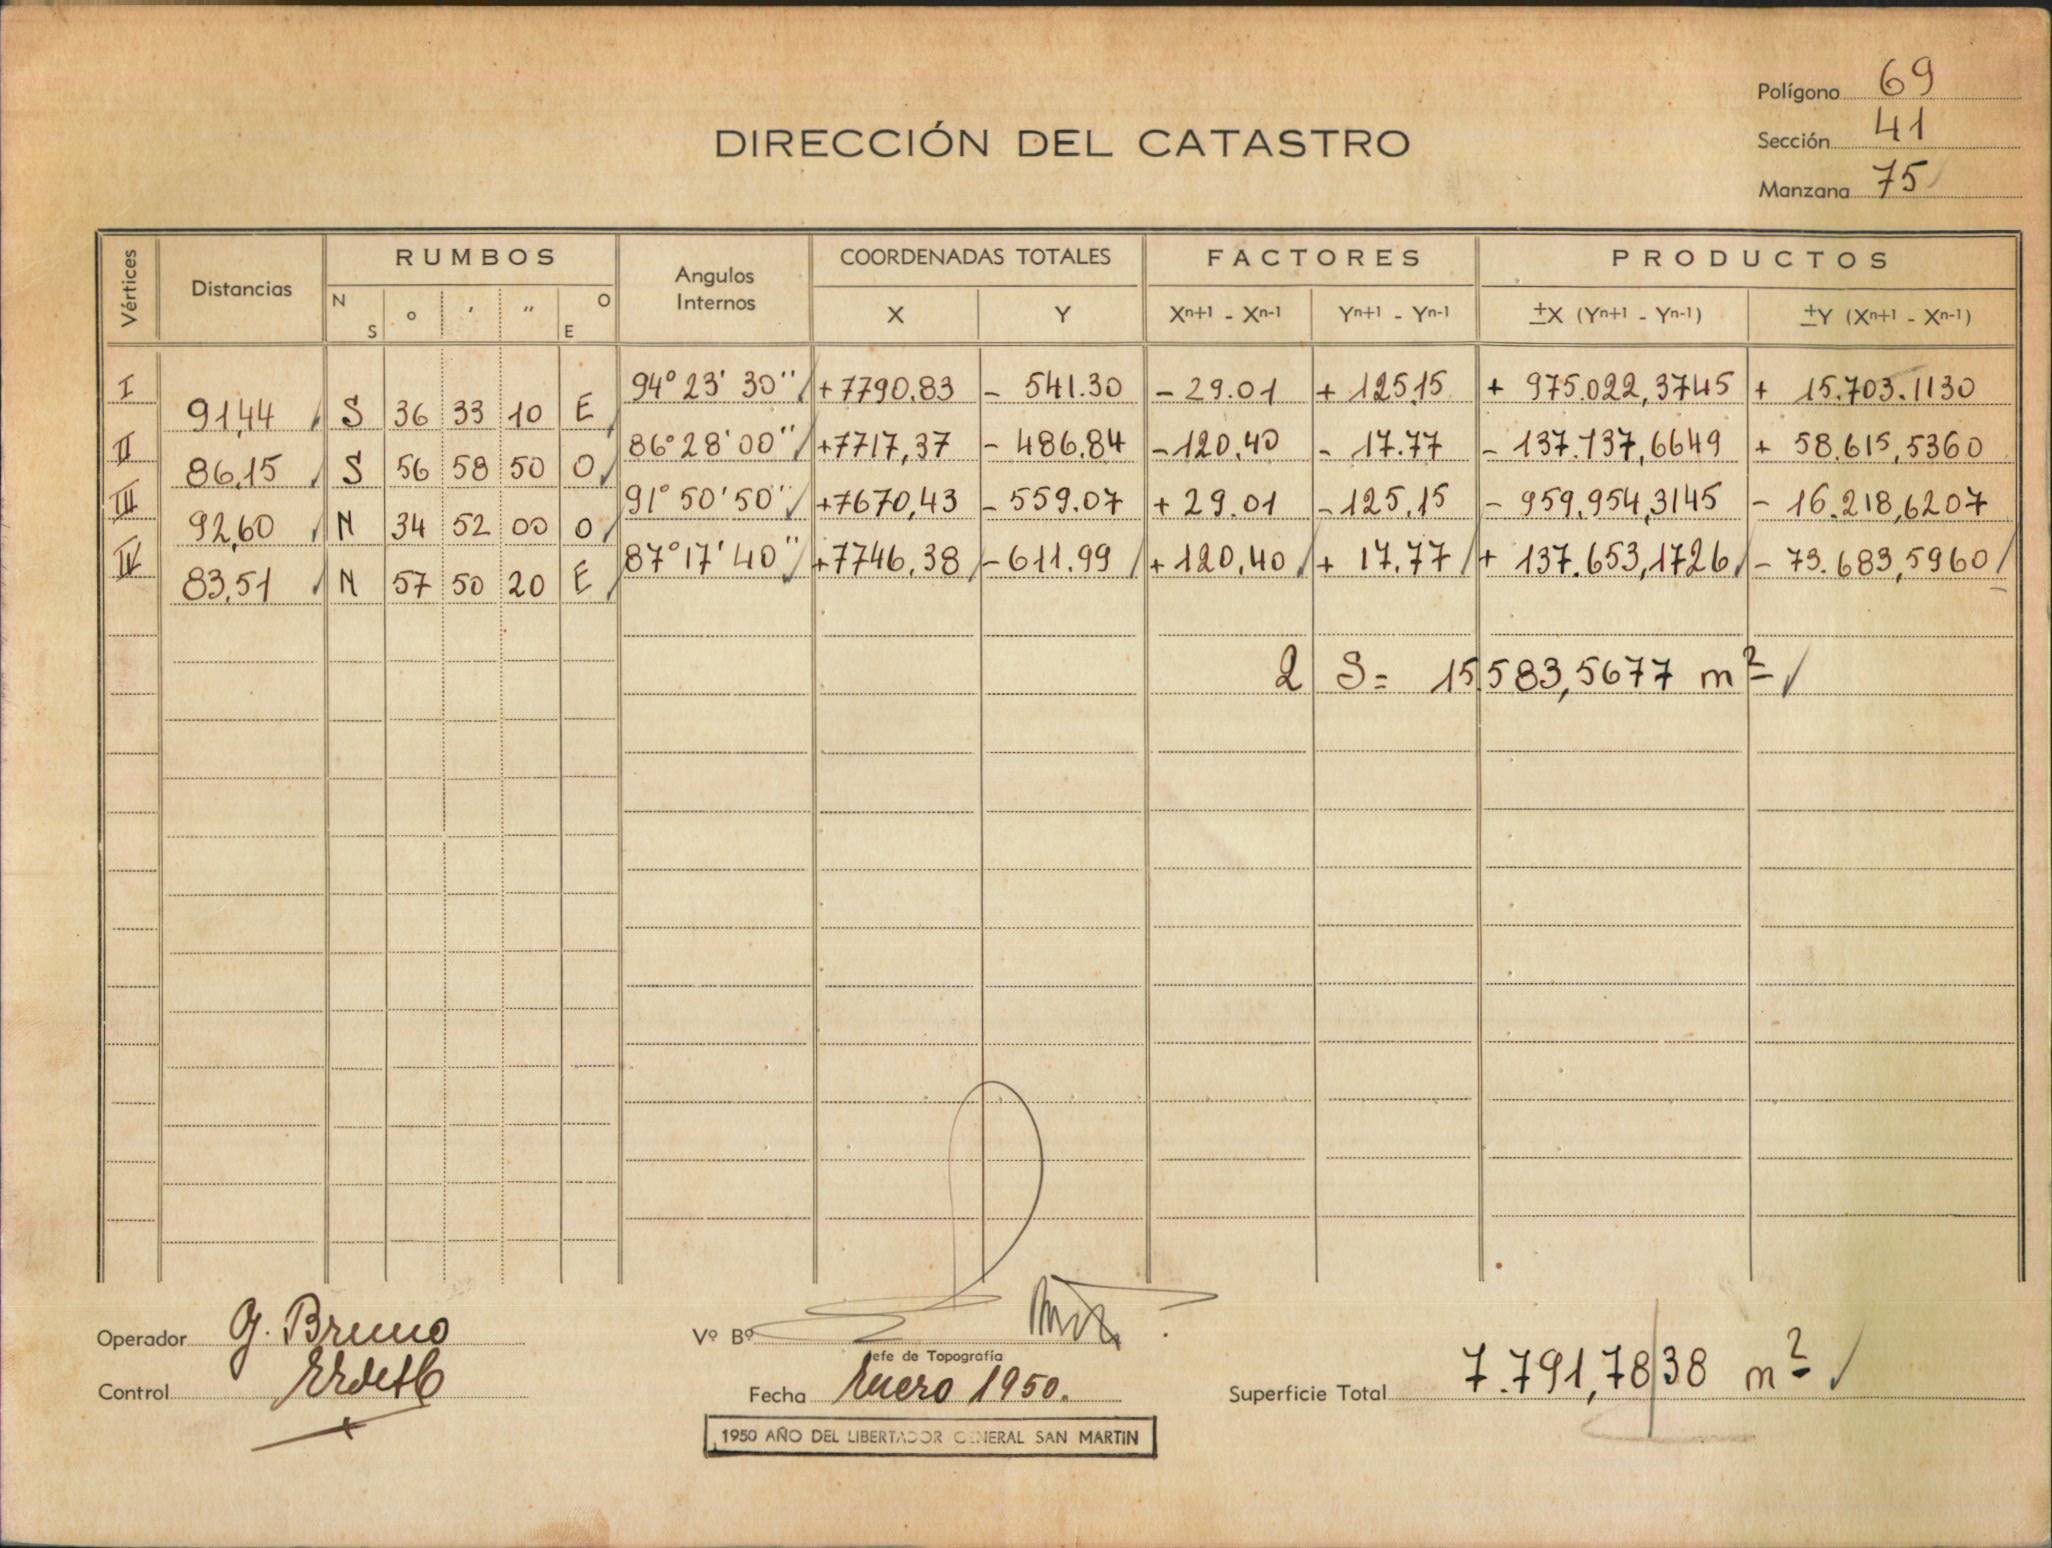 Polígono 69
DIRECCIÓN DEL CATASTRO
Sección 41
Manzana 75
Vértices Distancias RUMBOS Angulos Internos COORDENADAS TOTALES FACTORES PRODUCTOS
N S ° ' " O E X Y Xn+1 - Xn-1 Yn+1 - Yn-1 ±X (Yn+1 - Yn-1) ±Y (Xn+1 - Xn-1)
I 94° 23' 30" +7790,83 - 541.30 - 29.01 + 125,15 + 975.022,3745 + 15.703.1130
91,44 S 36 33 10 E
II 86° 28' 00" +7717,37 - 486.84 -120.40 - 17.77 - 137.137,6649 + 58.615,5360
86,15 S 56 58 50 O
III 91° 50' 50" +7670,43 - 559.07 + 29.01 -125,15 - 959.954,3145 - 16.218,6207
92,60 N 34 52 00 O
IV 87° 17' 40" +7746,38 -611.99 + 120,40 + 17.77 + 137.653,1726 - 73.683,5960
83,51 N 57 50 20 E
2 S= 15583,5677 m2
Operador G. Bruno
Vº Bº
Jefe de Topografía
Control
Fecha Enero 1950.
Superficie Total 7.791,7838 m2
1950 AÑO DEL LIBERTADOR GENERAL SAN MARTIN